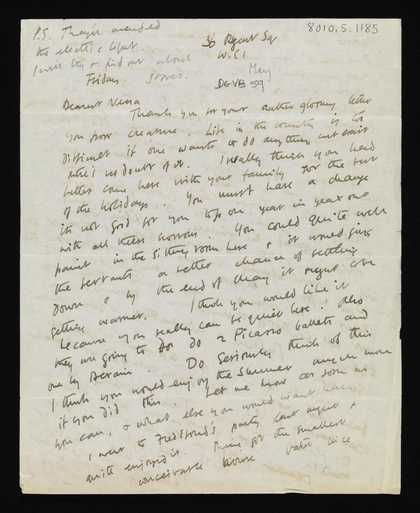 P.S. Thayer mended
the electric light.
I will try & find out about
Stoves.
8010.5.1185
36 Regent Sq
W.C.1
May
DG-VB 59
Friday
Dearest Nessa
Thank you for your rather gloomy letter
you poor creature. Life in the country is too
difficult if one wants to do anything but exist
there's no doubt of it. I really think you had
better come here with your family for the rest
of the holidays. You must have a change
its not good for you to go on year in year out
with all these horrors. You could quite well
paint in the sitting room here & it would give
the servants a better chance of settling
down & by the end of May it might be
getting warmer. I think you would like it
because you really can be quiet here. Also
they are going to do 2 Picasso ballets and
one by Derain. Do seriously think of this
I think you would enjoy the Summer much more
if you did this. Let me know as soon as
you can, & what else you would want here.
I went to Fredegond's party last night &
quite enjoyed it. They've got the smallest
conceivable house rather nice